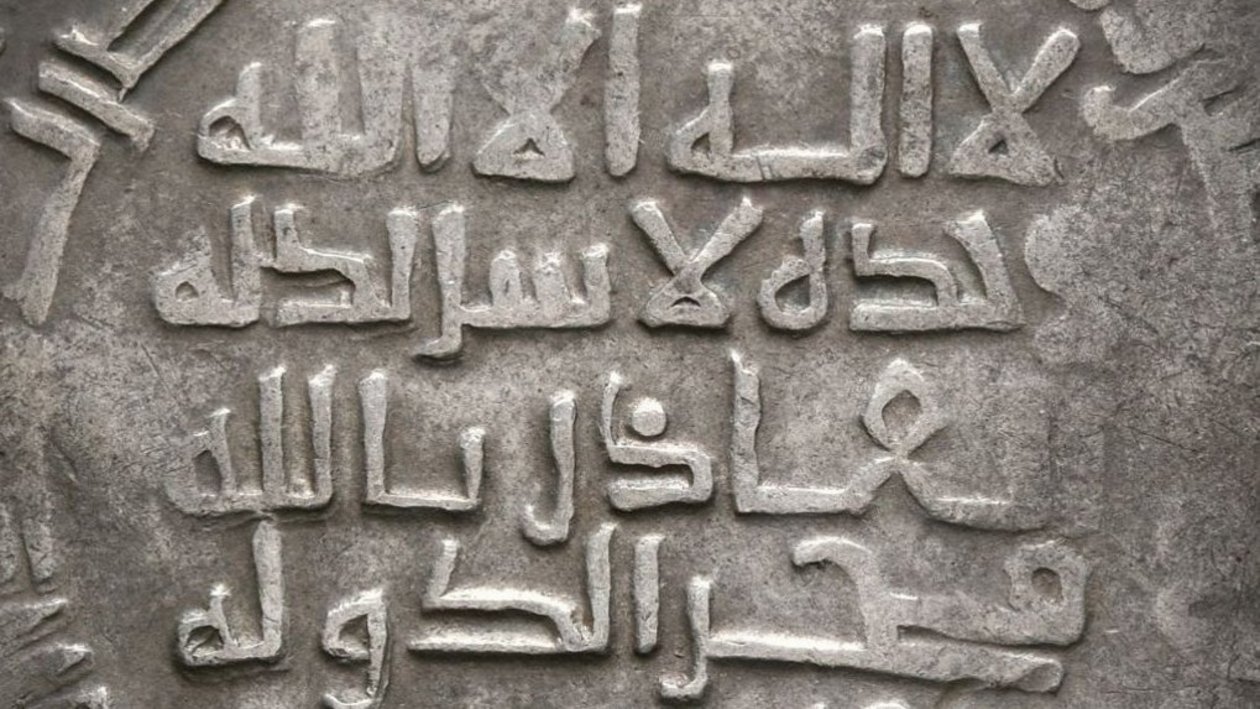 لا اله الا الله
وحده لا شريك له
القادر بالله
فخر الدوله